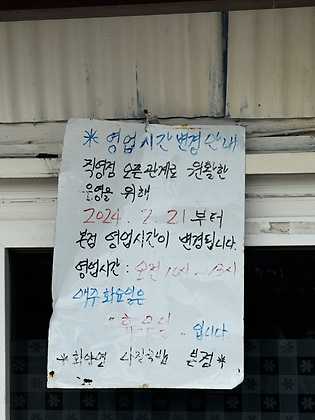 * 영업시간변경안내
직영점 오픈관계로 원활한
운영을 위해
2024. 7. 21 부터
본점 영업시간이 변경됩니다.
영업시간 : 오전 10시 - 15시
매주 화요일은
" 휴무일 " 입니다
본점 *